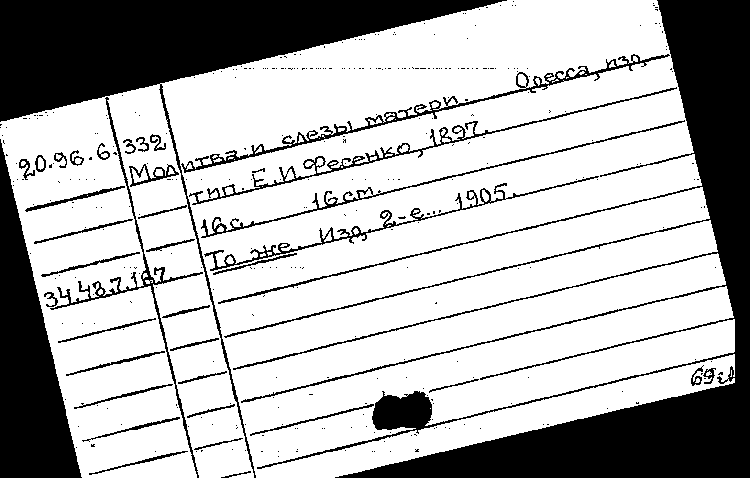 20.96.6.332
Молитва и слезы матери. Одесса, изд.
тип. Е.И. Фесенко, 1897.
16 с. 16 см.
34.48.7.167 То же. Изд. 2-е... 1905.